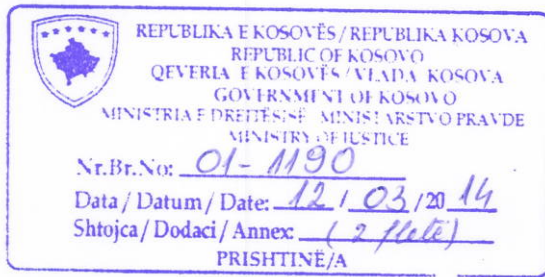 REPUBLIKA E KOSOVËS / REPUBLIKA KOSOVA
REPUBLIC OF KOSOVO
QEVERIA E KOSOVËS / VLADA KOSOVA
GOVERNMENT OF KOSOVO
MINISTRIA E DREJTËSISË MINISTARSTVO PRAVDE
MINISTRY OF JUSTICE
Nr.Br.No: 01-1190
Data / Datum / Date: 12 / 03 /20 14
Shtojca / Dodaci / Annex: (2 fletë)
PRISHTINË/A